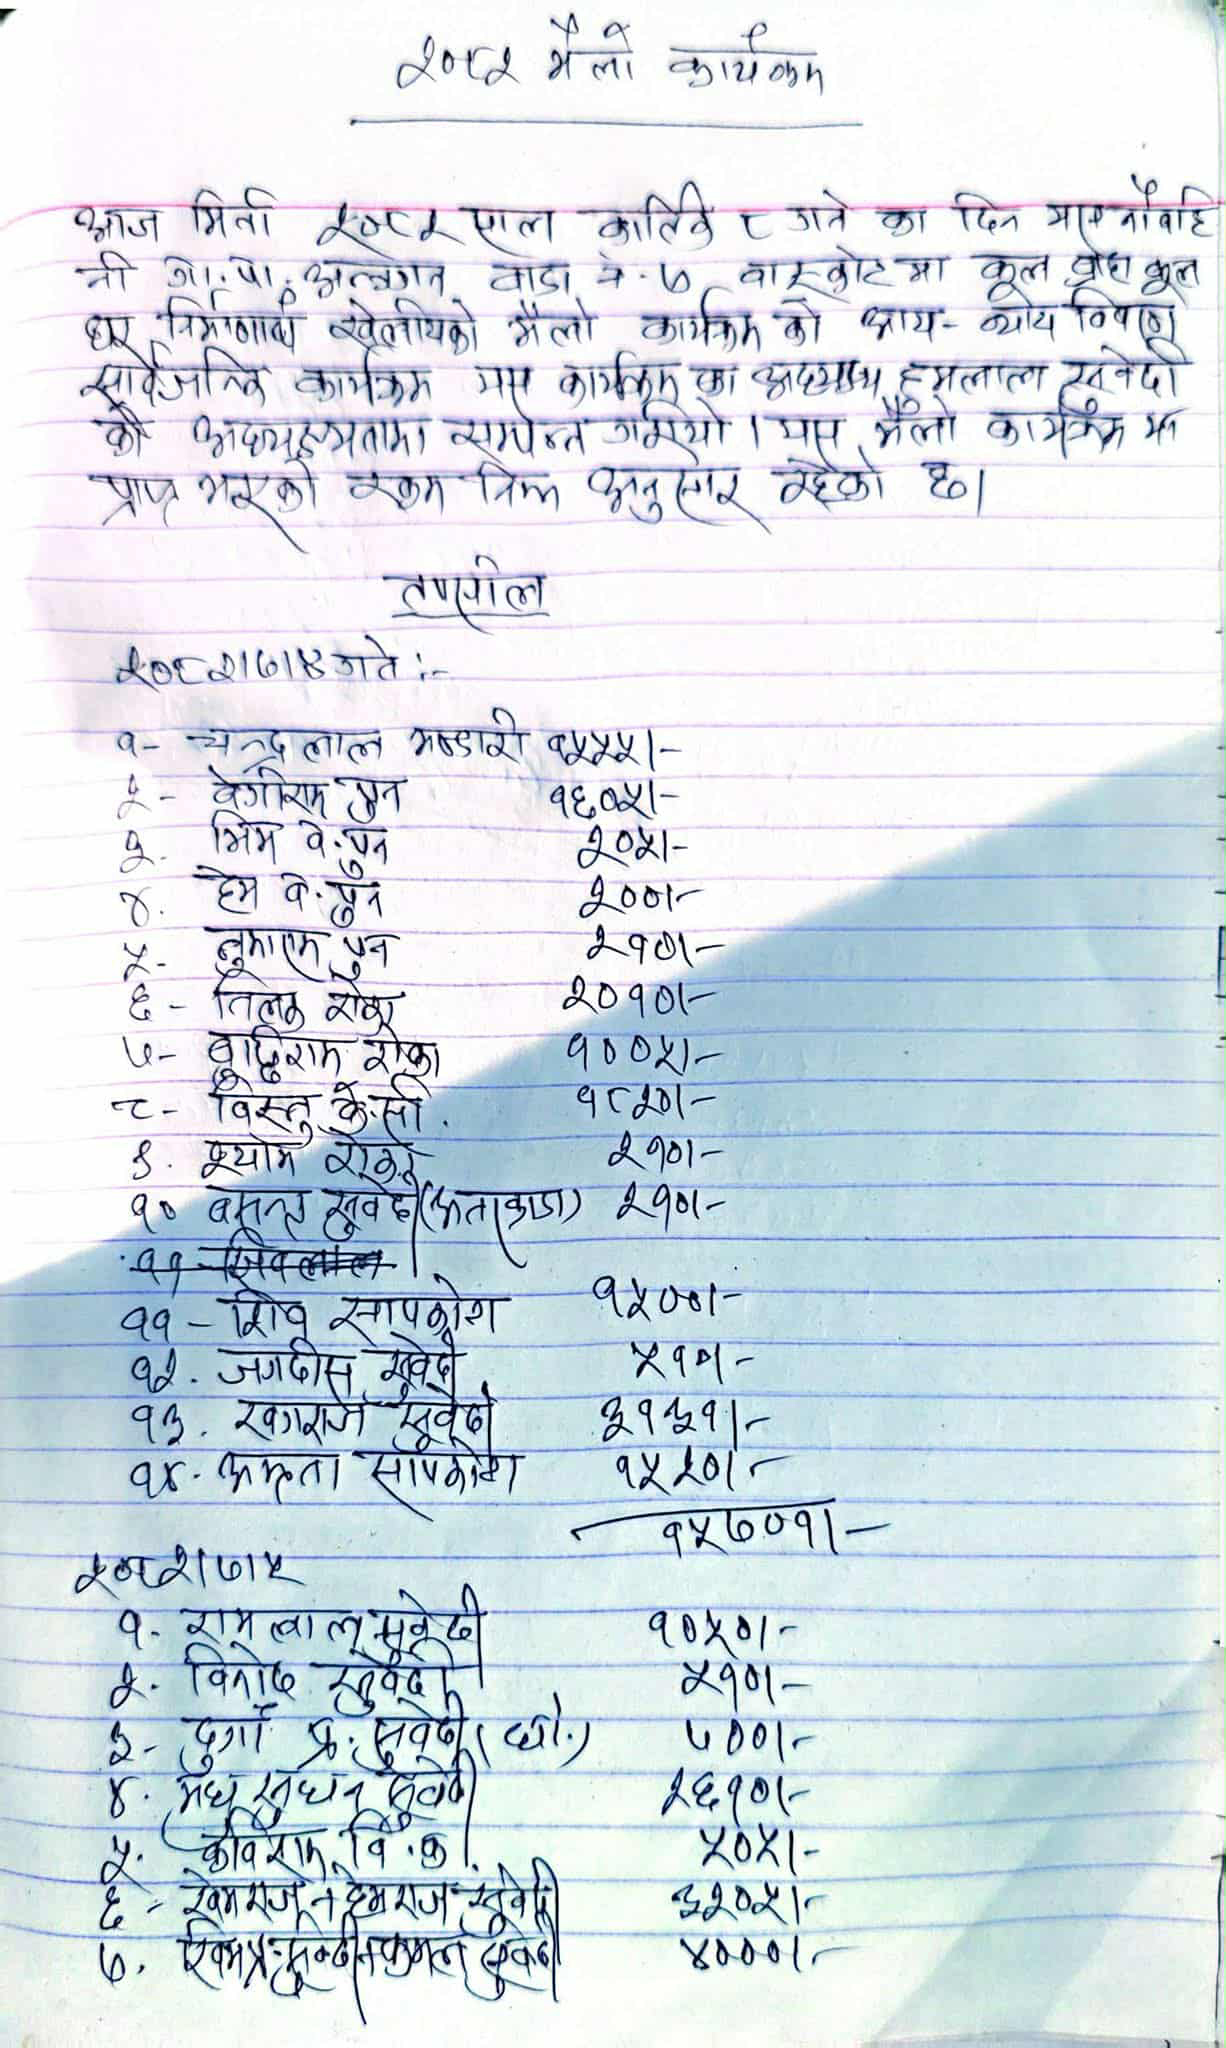 २०८२ भैलो कार्यक्रम
आज मिती २०८२ साल कार्तिक ८ गते का दिन
नी गा.पा. अन्तर्गत वाडा नं. ७ बास्कोटमा कूल कूल
घर निर्माणार्थ खेलीयको भैलो कार्यक्रम को आय-व्याय विवरण
सार्वजनिक कार्यक्रम यस कार्यक्रम का अध्यक्ष हुमलाल सुवेदी
को अध्यक्षतामा सम्पन्न गरियो । यस भैलो कार्यक्रम मा
प्राप्त भएको रकम निम्न अनुसार रहेको छ।
तपसील
२०८२।७।४ गते :-
१- चन्द्रलाल भण्डारी १५५५।-
२- वेगीराम पुन १६०५।-
३. भिम व. पुन २०५।-
४. हेम व. पुन २००।-
५- जुमाराम पुन २१०।-
६- तिलक रोका २०१०।-
७- बुद्धिराम रोका १००५।-
८- विस्नु के.सी. १८२०।-
९. श्याम रोका २१०।-
१० बसन्त सुवेदी ( ) २१०।-
११ शिवलाल
११- शिव सापकोटा १५००।-
१२. जगदीस सुवेदी ५१०।-
१३. खगराज सुवेदी ३१३१।-
१४. अमृता सापकोटा १५२०।-
१५७०१।-
२०८२।७।५
१. रामलाल सुवेदी १०५०।-
२. विनोद सुवेदी ५१०।-
३- दुर्गा प्र. सुवेदी ७००।-
४. मधुसुधन सुवेदी २६१०।-
५. कविराम वि.क. ५०५।-
६- खेमराज न हेमराज सुवेदी ३२०५।-
७. खिमप्र. सुवेदी न कमल सुवेदी ४०००।-